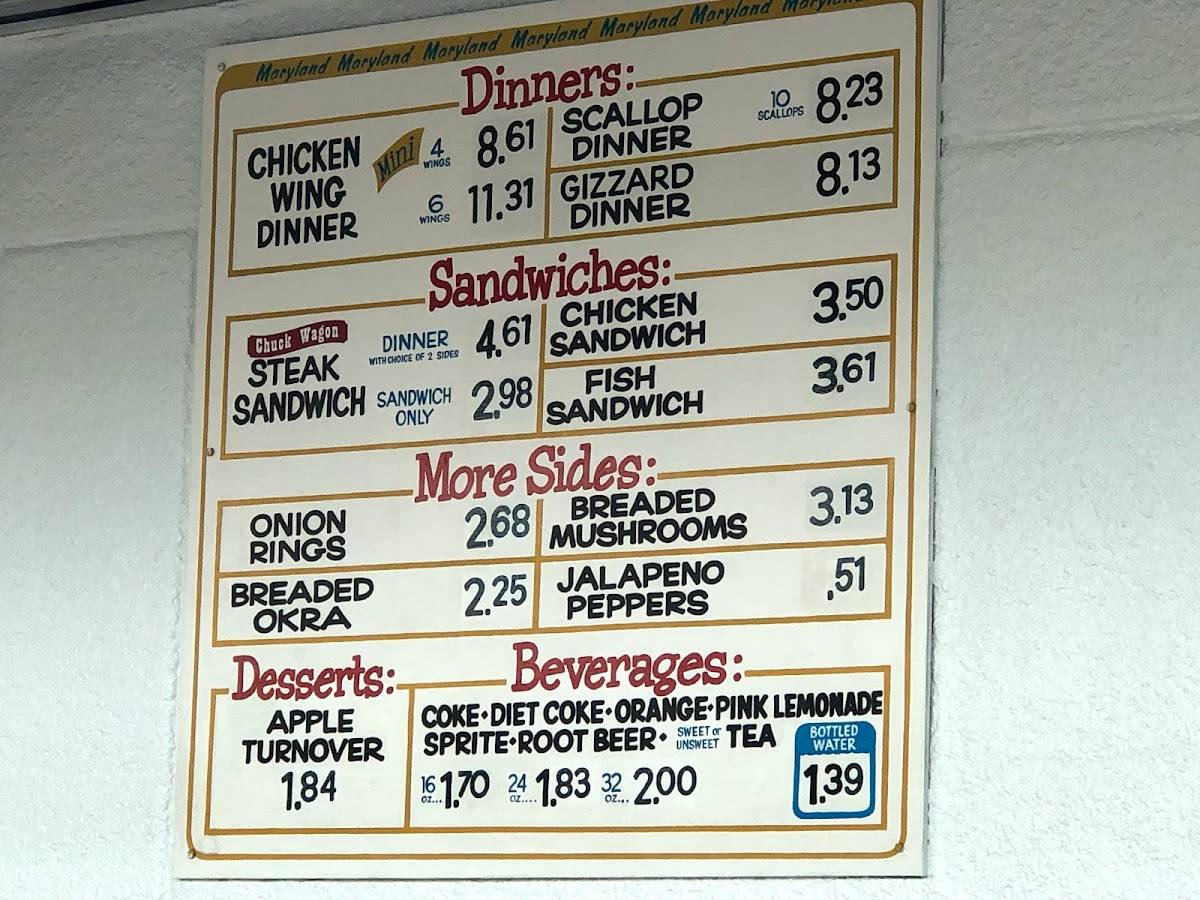 Maryland Maryland Maryland Maryland Maryland Maryland Maryland
Dinners:
CHICKEN
WING
DINNER
Mini
4
WINGS
8.61
6
WINGS
11.31
SCALLOP
DINNER
10
SCALLOPS
8.23
GIZZARD
DINNER
8.13
Sandwiches:
Chuck Wagon
STEAK
SANDWICH
DINNER
WITH CHOICE OF 2 SIDES
4.61
SANDWICH
ONLY
2.98
CHICKEN
SANDWICH
3.50
FISH
SANDWICH
3.61
More Sides:
ONION
RINGS
2.68
BREADED
MUSHROOMS
3.13
BREADED
OKRA
2.25
JALAPENO
PEPPERS
.51
Desserts:
APPLE
TURNOVER
1.84
Beverages:
COKE•DIET COKE•ORANGE•PINK LEMONADE
SPRITE•ROOT BEER• SWEET or UNSWEET TEA
16 OZ... 1.70 24 OZ.... 1.83 32 OZ... 2.00
BOTTLED
WATER
1.39